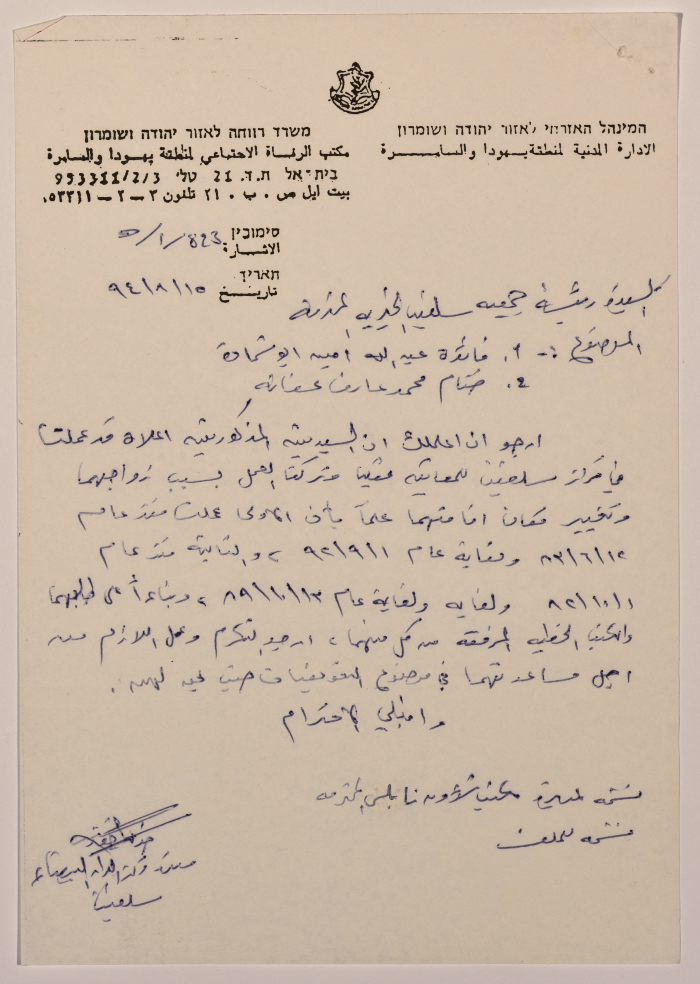 המינהל האזרחי לאזור יהודה ושומרון
الادارة المدنية لمنطقة يهودا والسامرة
משרד רווחה לאזור יהודה ושומרון
مكتب الرفاة الاجتماعي لمنطقة يهودا والسامرة
בית־אל ת.ד. 21 טל׳ 953311/2/3
بيت ايل ص . ب . ٢١ تلفون ٣ - ٢ - ٩٥٣٣١١
סימוכין
الاشارة: 823/١/
תאריך
تاريخ ٩٤/٨/١٥
السيدة رئيسة جمعية سلفيت الخيرية المحترمة
الموضوع :- ١. فائزة عبد الله امين ابو شحادة
٢. ختام محمد عارف عفانة
ارجو ان اعلمك ان السيدتين المذكورتين اعلاه قد عملتا
في مركز سلفيت للمعاقين وتركتا العمل بسبب زواجهما
وتغيير مكان اقامتهما علماً بأن الاولى عملت منذ عام
٨٣/٦/١٢ ولغاية عام ٩٢/٩/١ ، والثانية منذ عام
٨٢/١٠/١ ولغاية عام ٨٩/١٠/١٣ ، وبناءاً على طلبهما
والكتب الخطية المرفقة من كل منهما ، ارجو التكرم وعمل اللازم من
اجل مساعدتهما في موضوع التعويضات
واقبلي الاحترام
نسخة لمديرة مكتب شؤون نابلس المحترمة
نسخة للملف
سلفيت